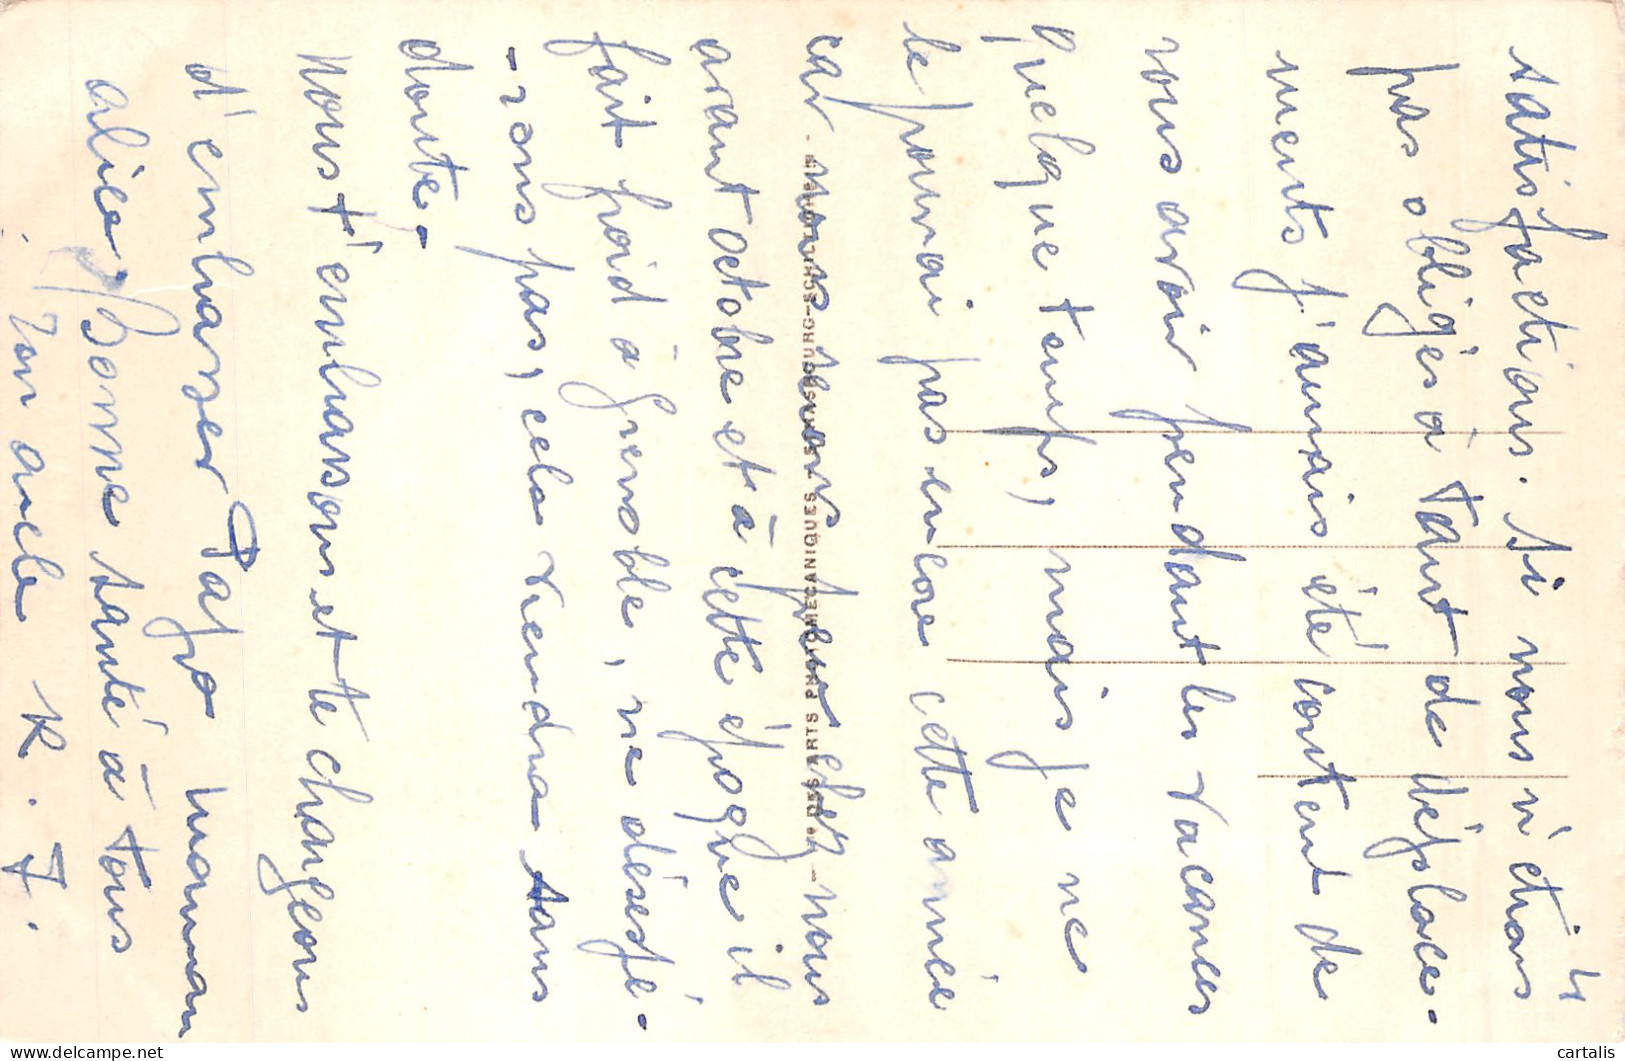 4
satisfactions. Si nous n'étions
pas obligés à tant de déplace-
ments j'aurais été content de
vous avoir pendant les vacances
quelque temps, mais je ne
le pourrai pas encore cette année
car nous serons pas chez nous
avant octobre et à cette époque il
fait froid à Grenoble, ne désespé-
-rons pas, cela viendra sans
doute.
Nous t'embrassons et te chargeons
d'embrasser Papa maman
alice, Bonne santé à tous
Ton oncle K. F.
DES ARTS PHOTOMECANIQUES - STRASBOURG-SCHILTIGHEIM -
cartalis